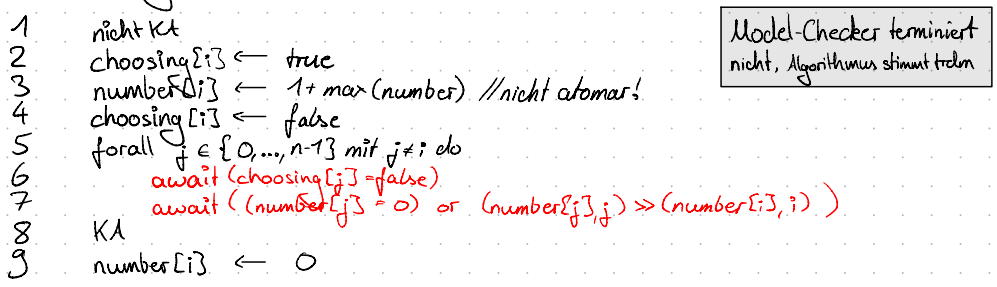 1 nicht KA
2 choosing[i] ← true
3 number[i] ← 1 + max(number) //nicht atomar!
4 choosing[i] ← false
5 forall j ∈ {0,...,n-1} mit j≠i do
6 await(choosing[j]=false)
7 await((number[j] = 0) or (number[j],j) >> (number[i],i))
8 KA
9 number[i] ← 0
Model-Checker terminiert
nicht, Algorithmus stimmt trdm